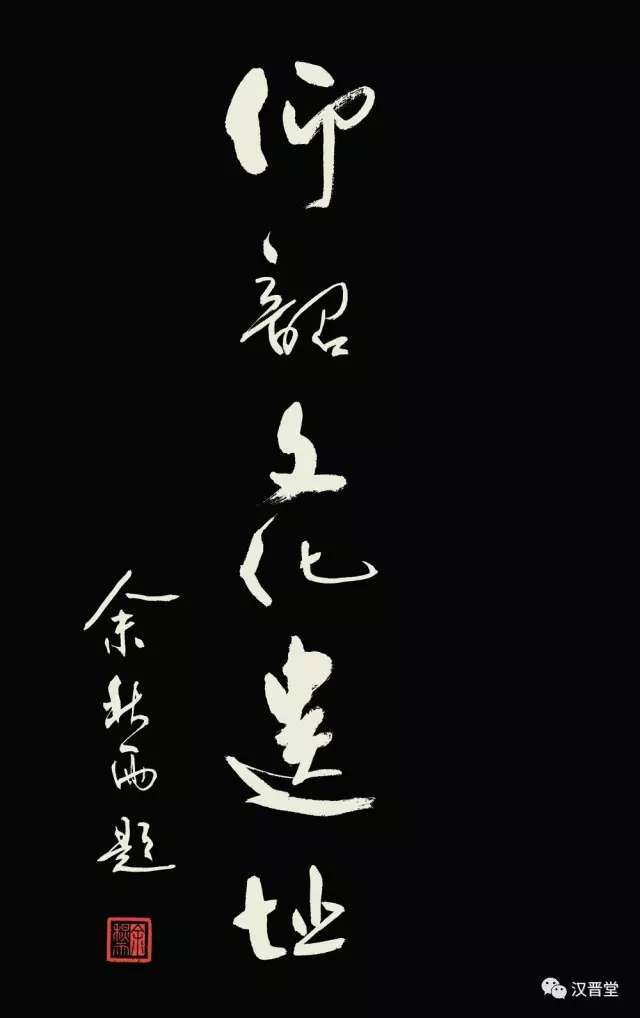 仰韶文化遗址
余秋雨题
汉晋堂